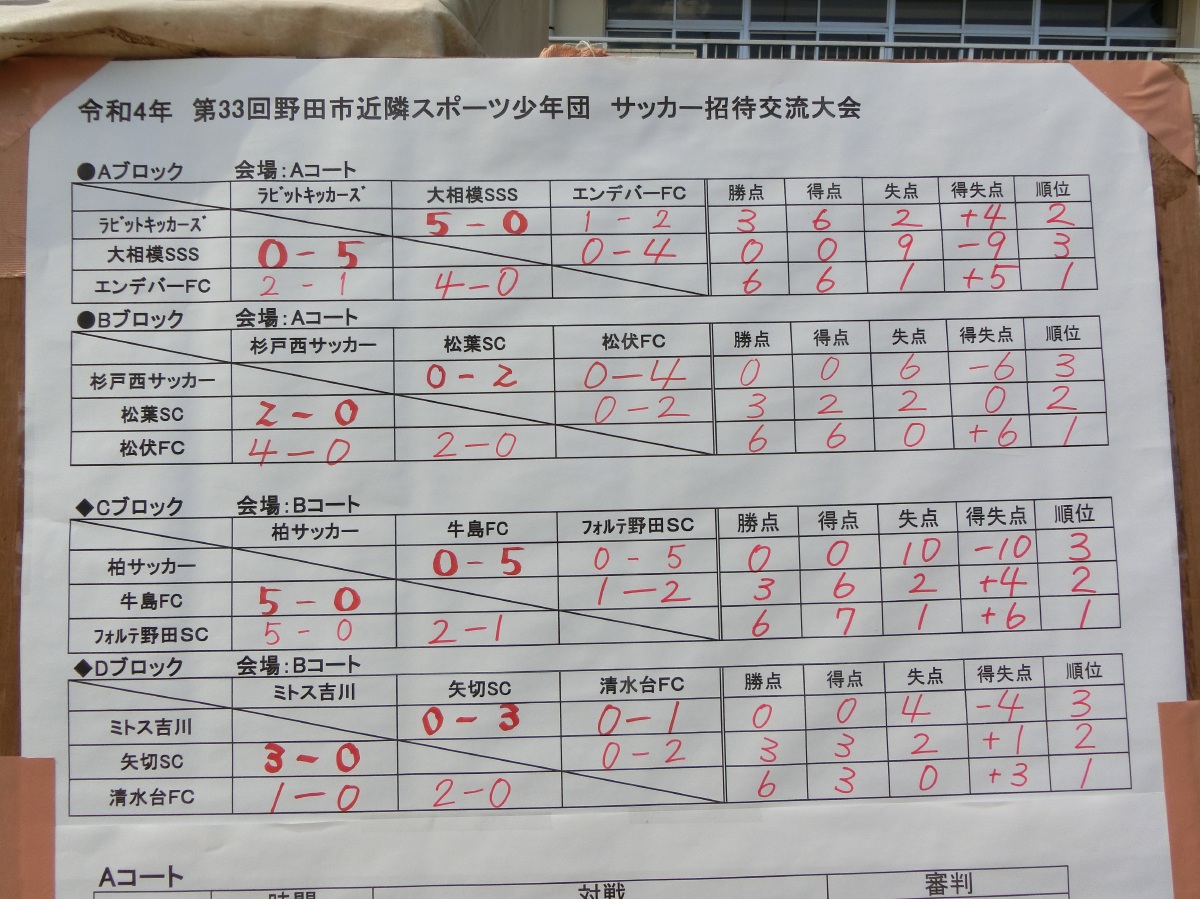 令和4年 第33回野田市近隣スポーツ少年団 サッカー招待交流大会
●Aブロック 会場:Aコート
ﾗﾋﾞｯﾄｷｯｶｰｽﾞ 大相模SSS エンデバーFC 勝点 得点 失点 得失点 順位
ﾗﾋﾞｯﾄｷｯｶｰｽﾞ 5-0 1-2 3 6 2 +4 2
大相模SSS 0-5 0-4 0 0 9 -9 3
エンデバーFC 2-1 4-0 6 6 1 +5 1
●Bブロック 会場:Aコート
杉戸西サッカー 松葉SC 松伏FC 勝点 得点 失点 得失点 順位
杉戸西サッカー 0-2 0-4 0 0 6 -6 3
松葉SC 2-0 0-2 3 2 2 0 2
松伏FC 4-0 2-0 6 6 0 +6 1
◆Cブロック 会場:Bコート
柏サッカー 牛島FC ﾌｫﾙﾃ野田SC 勝点 得点 失点 得失点 順位
柏サッカー 0-5 0-5 0 0 10 -10 3
牛島FC 5-0 1-2 3 6 2 +4 2
ﾌｫﾙﾃ野田SC 5-0 2-1 6 7 1 +6 1
◆Dブロック 会場:Bコート
ミトス吉川 矢切SC 清水台FC 勝点 得点 失点 得失点 順位
ミトス吉川 0-3 0-1 0 0 4 -4 3
矢切SC 3-0 0-2 3 3 2 +1 2
清水台FC 1-0 2-0 6 3 0 +3 1
Aコート
時間 対戦 審判